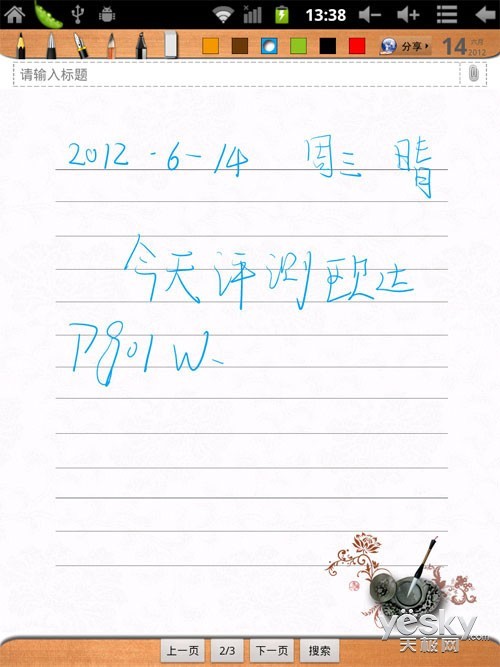 13:38
分享
14 六月 2012
请输入标题
2012-6-14 周三 晴
今天评测欧达
P901W.
上一页 2/3 下一页 搜索
yesky
天极网 .com